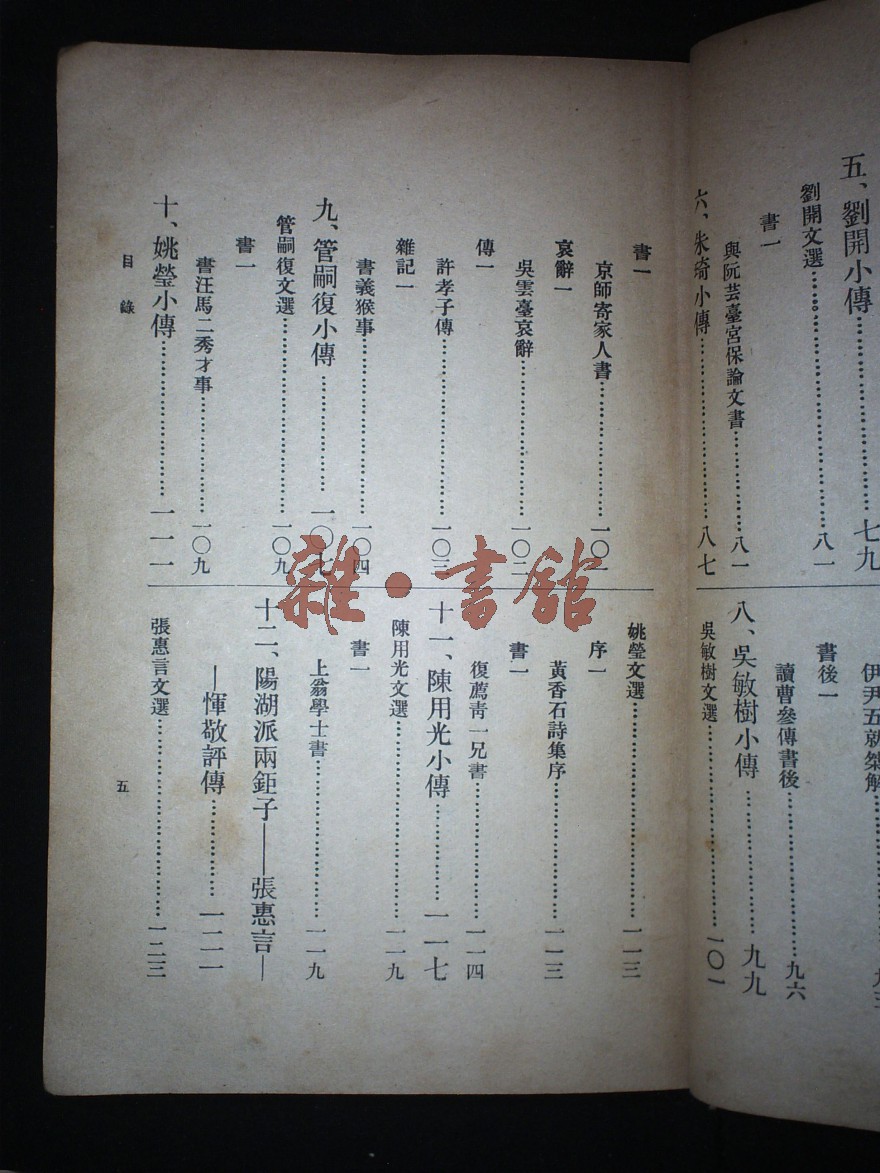 五、劉開小傳……………七九
劉開文選……………八一
書一
與阮芸臺宮保論文書……………八一
六、朱琦小傳……………八七
伊尹五就桀解
書後一
讀曹參傳書後……………九六
八、吳敏樹小傳……………九九
吳敏樹文選……………一〇一
書一
京師寄家人書……………一〇一
哀辭一
吳雲臺哀辭……………一〇二
傳一
許孝子傳……………一〇三
雜記一
書義猴事……………一〇四
九、管嗣復小傳……………一〇七
管嗣復文選……………一〇九
書一
書汪馬二秀才事……………一〇九
十、姚瑩小傳……………一一一
姚瑩文選……………一一三
序一
黃香石詩集序……………一一三
書一
復薦青一兄書……………一一四
十一、陳用光小傳……………一一七
陳用光文選……………一一九
書一
上翁學士書……………一一九
十二、陽湖派兩鉅子——張惠言—
—惲敬評傳……………一二一
張惠言文選……………一二三
目錄
五
雜·書舘